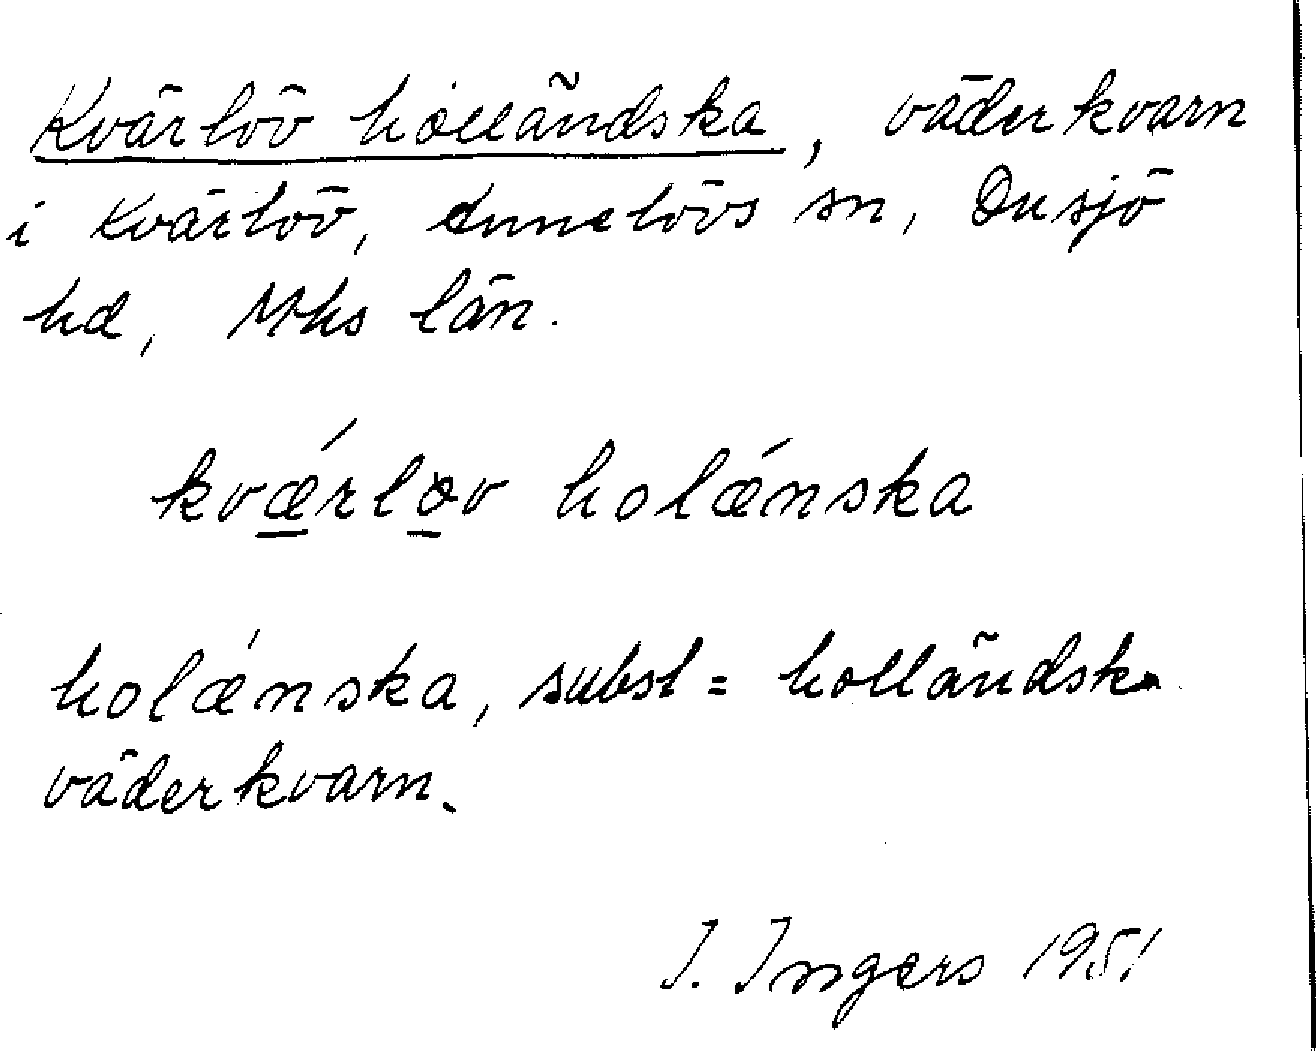 Kvärlöv holländska, väderkvarn
i Kvärlöv, Annelövs sn, Onsjö
hd, Mhs län.
kvǽrlov holǽnska
holǽnska, subst = holländsk
väderkvarn.
I. Ingers 1951